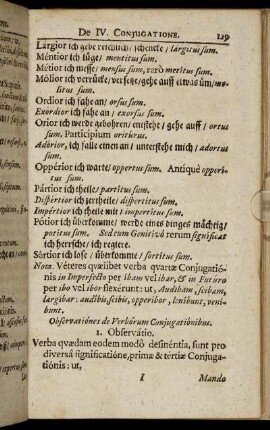 De IV. Conjugatione. 129
Lárgior ich gebe reichlich/ schencke/ largitus sum.
Méntior ich lüge/ mentitus sum.
Métior ich messe/ mensus sum, rarò metitus sum.
Mólior ich verrücke/ versetze/ gehe auff etwas üm/ mo-
litus sum.
Ordior ich fahe an/ orsus sum.
Exórdior ich fahe an/ exorsus sum.
Orior ich werde gebohren/ entstehe/ gehe auff/ ortus
sum. Participium oriturus.
Adórior, ich falle einen an/ unterstehe mich/ adortus
sum.
Oppérior ich warte/ oppertus sum. Antiquè opperi-
tus sum.
Pártior ich theile/ partitus sum.
Dispértior ich zertheile/ dispertitus sum.
Impértior ich theile mit/ impertitus sum.
Pótior ich überkomme/ werde eines dinges mächtig/
potitus sum. Sed cum Genitivô rerum significat
ich herrsche/ ich regiere.
Sórtior ich lose/ überkomme/ sortitus sum.
Nota. Véteres quælibet verba quartæ Conjugatió-
nis in Imperfecto per ibam vel ibar, & in Futuro
per ibo vel ibor flexêrunt: ut, Audibam, scibam,
largibar: audibis, scibis, opperibor, lenibunt, veni-
bunt.
Observatiónes de Verbórum Conjugatiónibus.
1. Observátio.
Verba quædam eodem modô desinéntia, sunt pro
diversâ significatióne, primæ & tértiæ Conjuga-
tiónis: ut,
I Mando